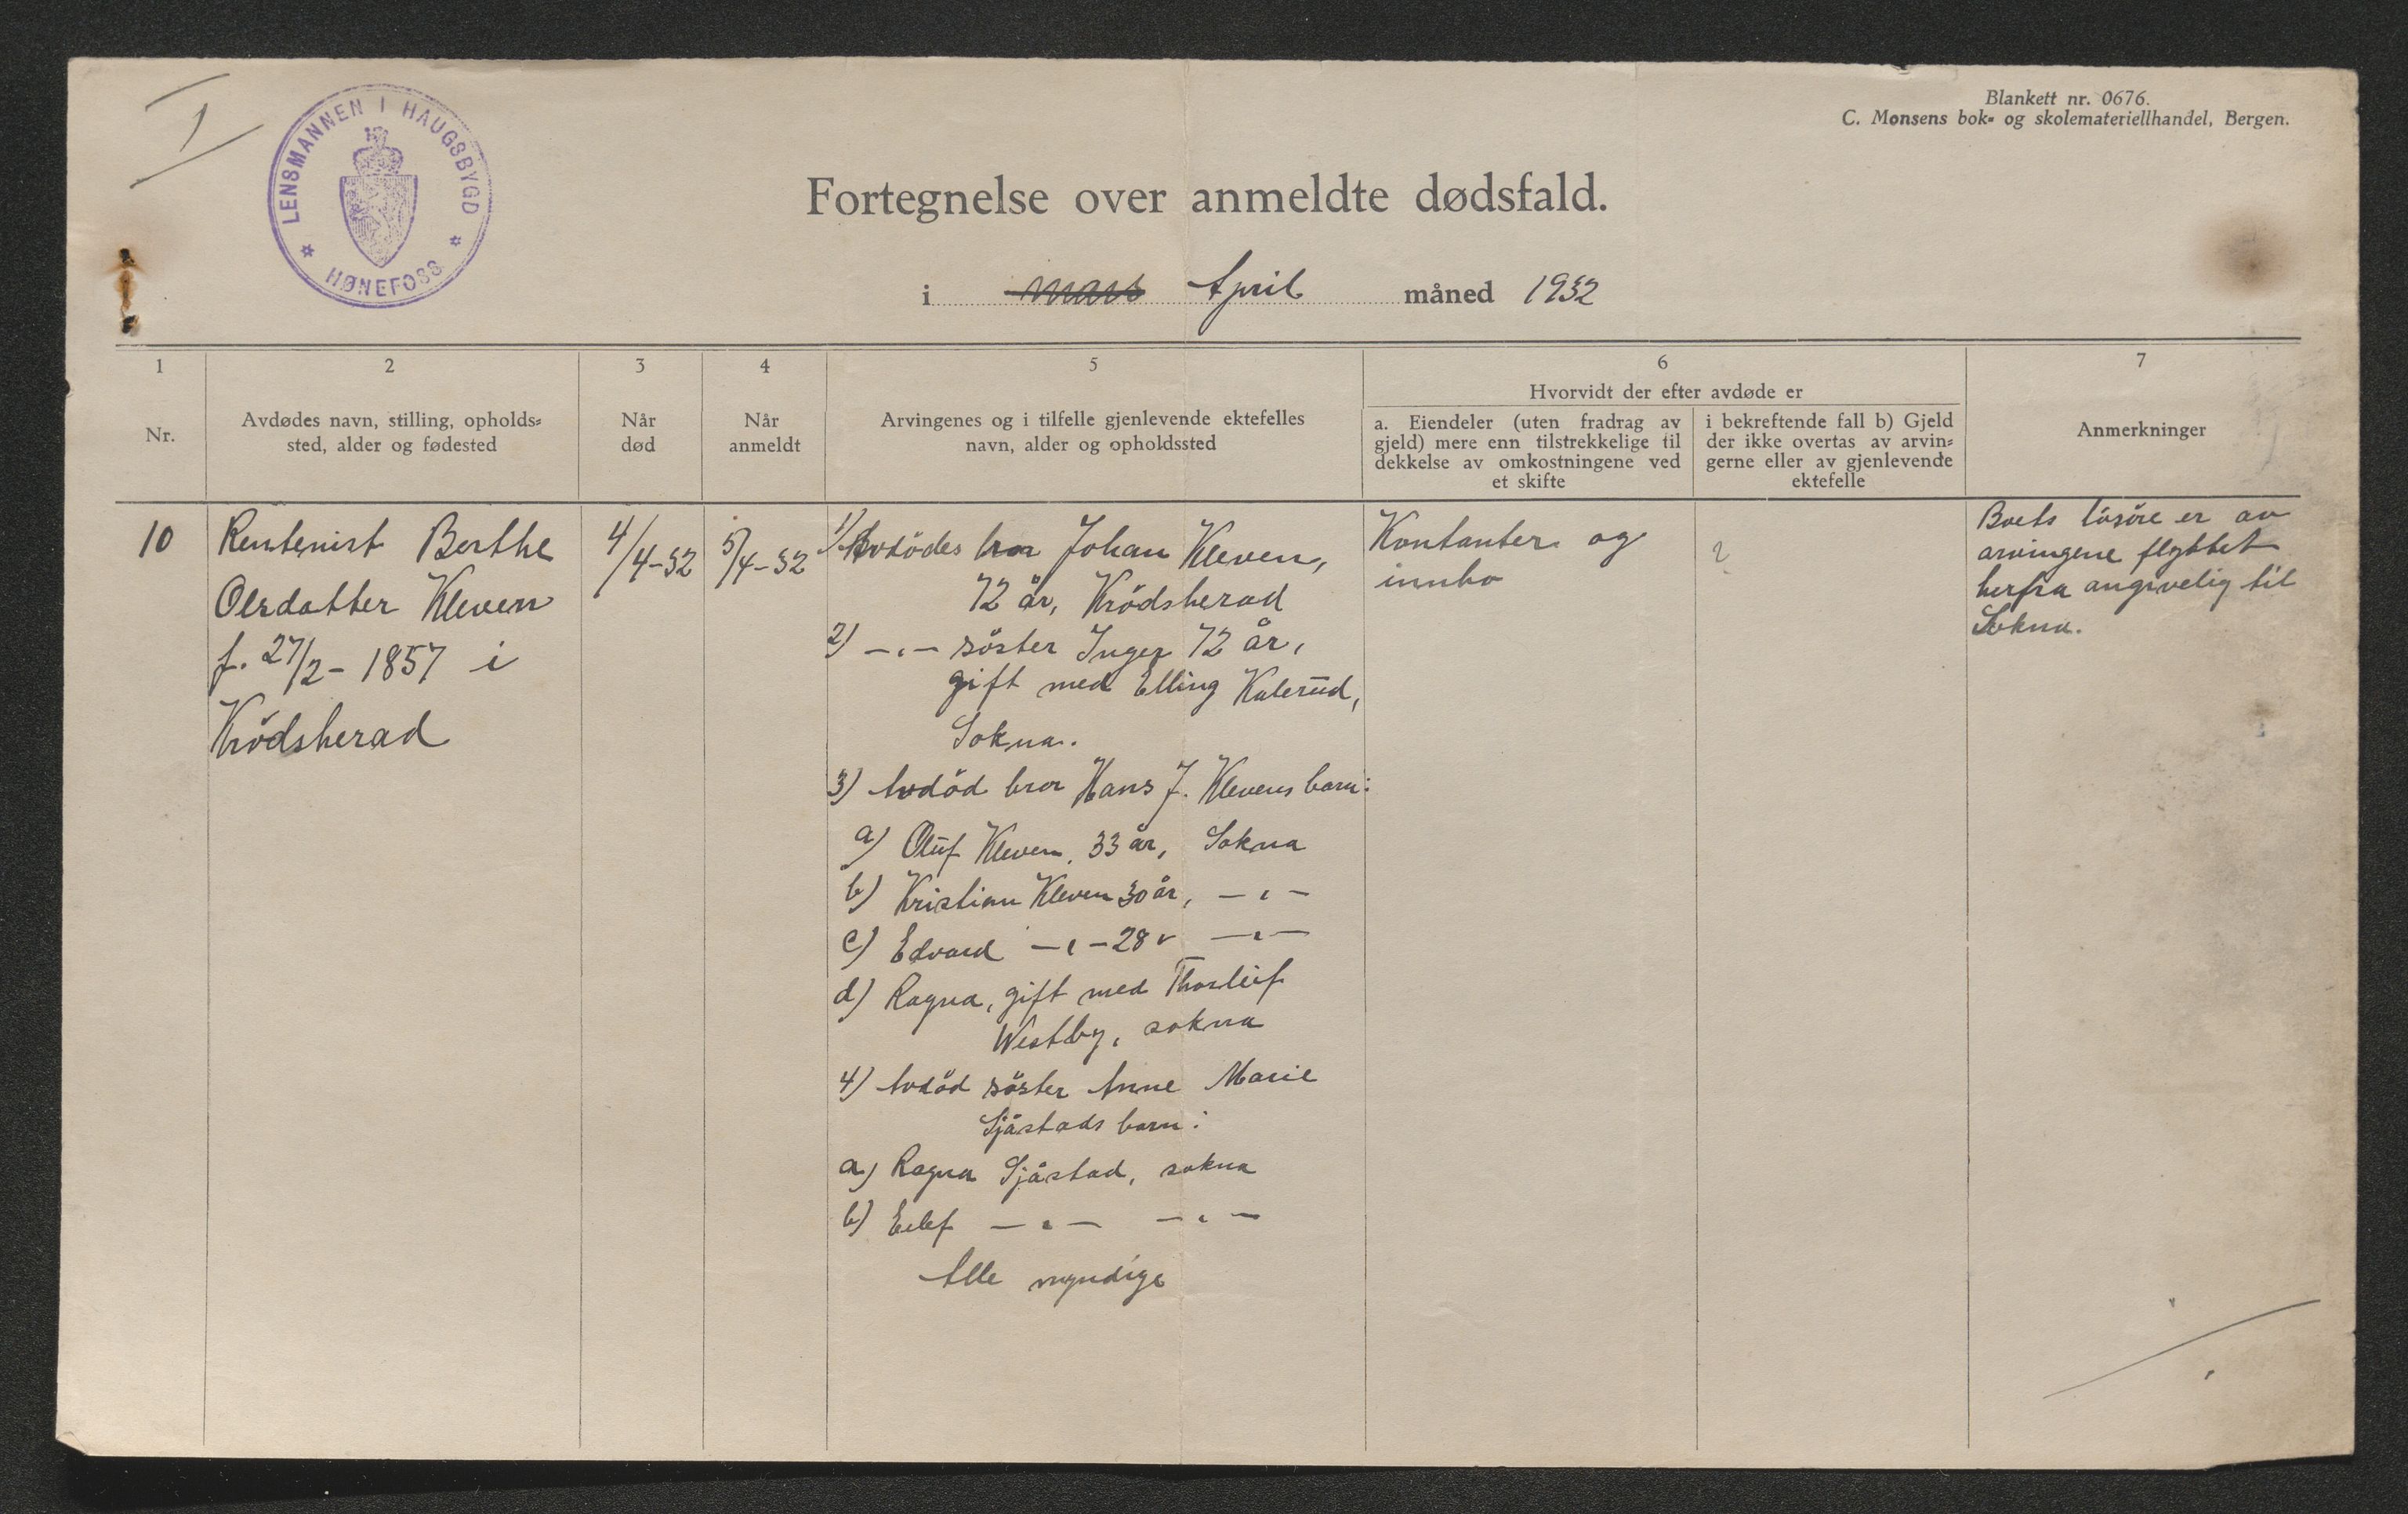 I
LENSMANNEN I HAUGSBYGD
HØNEFOSS
Blankett nr. 0676.
C. Monsens bok- og skolemateriellhandel, Bergen.
Fortegnelse over anmeldte dødsfald.
i mars April måned 1932
1
2
3
4
5
6
7
Nr.
Avdødes navn, stilling, opholds-
sted, alder og fødested
Når
død
Når
anmeldt
Arvingenes og i tilfelle gjenlevende ektefelles
navn, alder og opholdssted
Hvorvidt der efter avdøde er
a. Eiendeler (uten fradrag av
gjeld) mere enn tilstrekkelige til
dekkelse av omkostningene ved
et skifte
i bekreftende fall b) Gjeld
der ikke overtas av arvin-
gerne eller av gjenlevende
ektefelle
Anmerkninger
10
Rentenist Berthe
Olsdatter Kleven
f. 27/2 - 1857 i
Krödsherad
4/4-32
5/4-32
1) Avdödes bror Johan Kleven,
72 år, Krödsherad
2) -"- söster Inger 72 år,
gift med Elling Kulerud,
Sokna.
3) Avdöd bror Hans J. Klevens barn:
a) Oluf Kleven, 33 år, Sokna
b) Kristian Kleven 30 år, -"-
c) Edvard -"- 28 " -"-
d) Ragna, gift med Thorleif
Westby, sokna
4) Avdöd söster Anne Marie
Sjåstads barn:
a) Ragna Sjåstad, sokna
b) Eilef -"- -"-
Alle myndige
Kontanter og
innbo
?
Boets lösöre er av
arvingene flyttet
herfra angivelig til
Sokna.